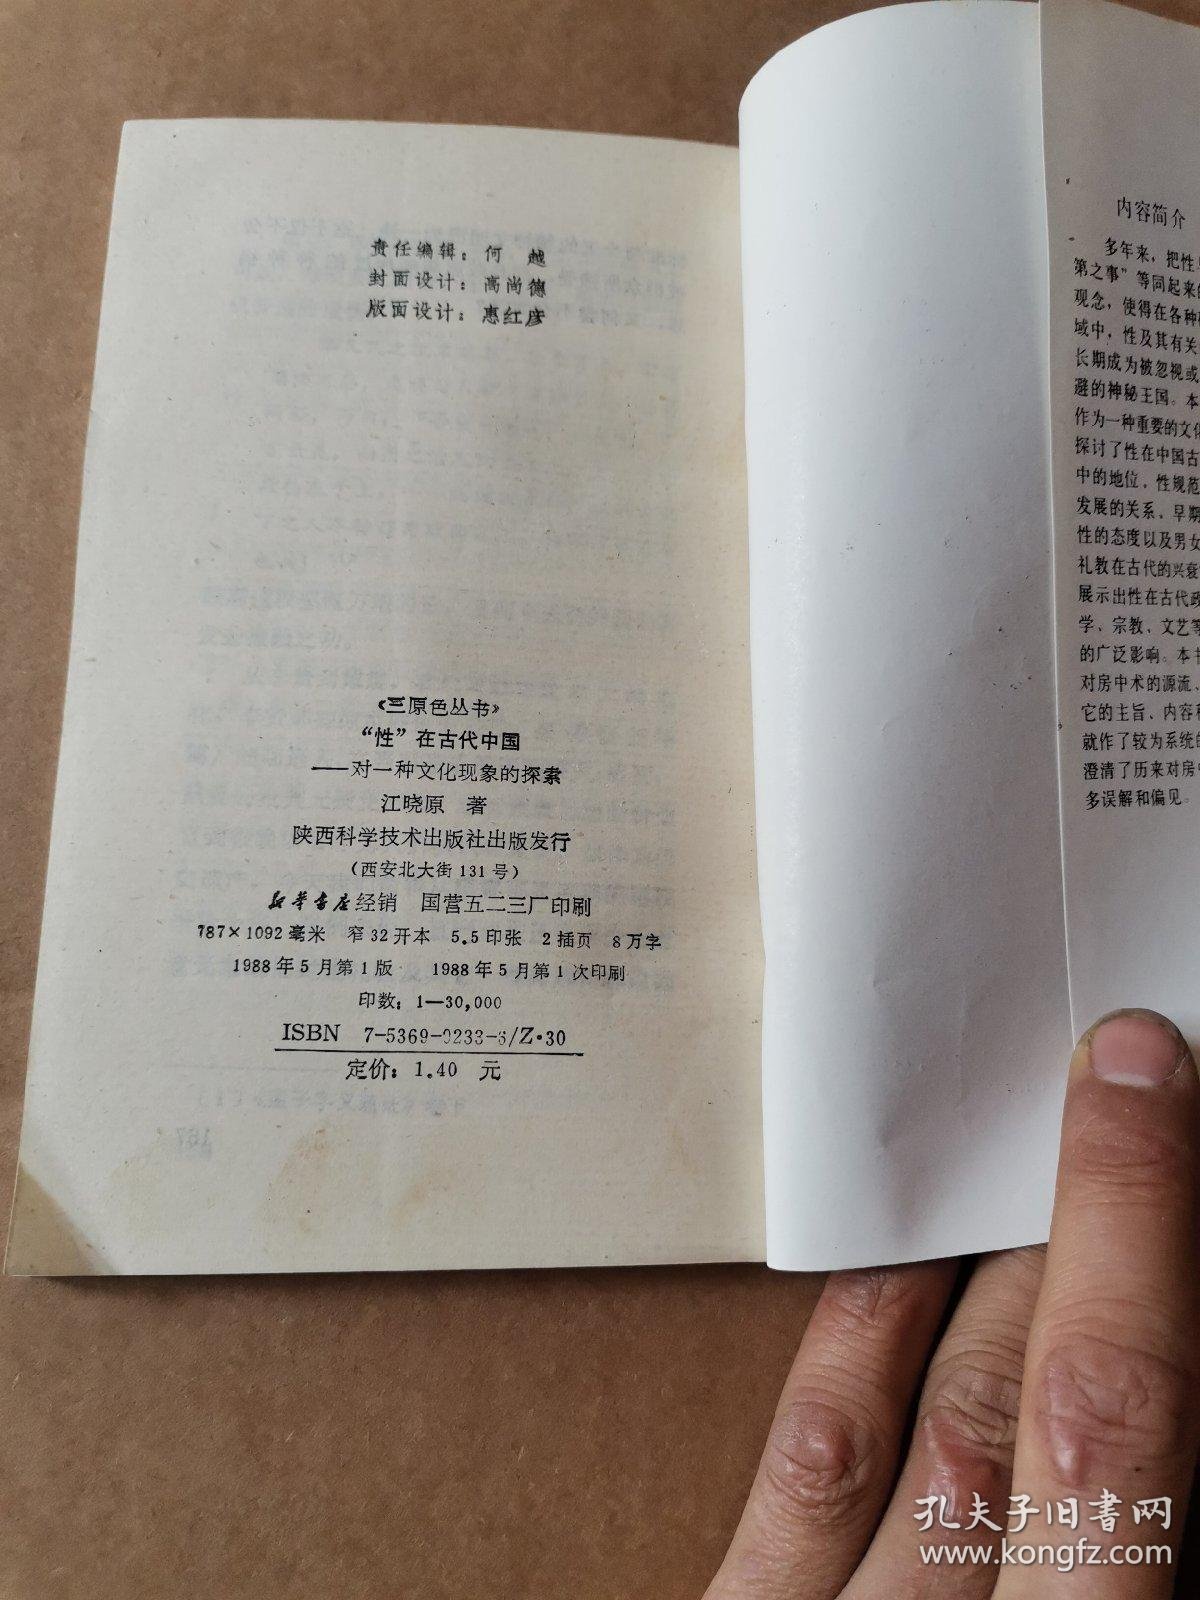 责任编辑：何 越
封面设计：高尚德
版面设计：惠红彦
《三原色丛书》
“性”在古代中国
——对一种文化现象的探索
江晓原 著
陕西科学技术出版社出版发行
（西安北大街131号）
新华书店经销 国营五二三厂印刷
787×1092毫米 窄32开本 5.5印张 2插页 8万字
1988年5月第1版 1988年5月第1次印刷
印数：1—30,000
ISBN 7-5369-0233-6/Z·30
定价：1.40 元
内容简介
多年来，把性
第之事”等同起来
观念，使得在各种
域中，性及其有关
长期成为被忽视或
避的神秘王国。本
作为一种重要的文化
探讨了性在中国古
中的地位，性规范
发展的关系、早期
性的态度以及男女
礼教在古代的兴衰
展示出性在古代政
学、宗教、文艺等
的广泛影响。本书
对房中术的源流、
它的主旨、内容和
就作了较为系统的
澄清了历来对房中
多误解和偏见。
孔夫子旧书网
www.kongfz.com